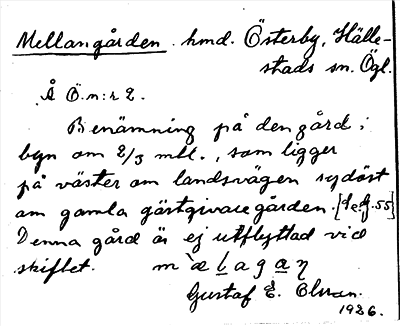 Mellangården. hmd. Österby, Hälle-
stads sn. Ögl.
Å Ö. n:r 2.
Benämning på den gård i
byn om 2/3 mtl., som ligger
på väster om landsvägen sydöst
om gamla gästgivaregården.
Denna gård är ej utflyttad vid
skiftet. m`ælagaŋ
Gustaf E. Olsson.
1926.